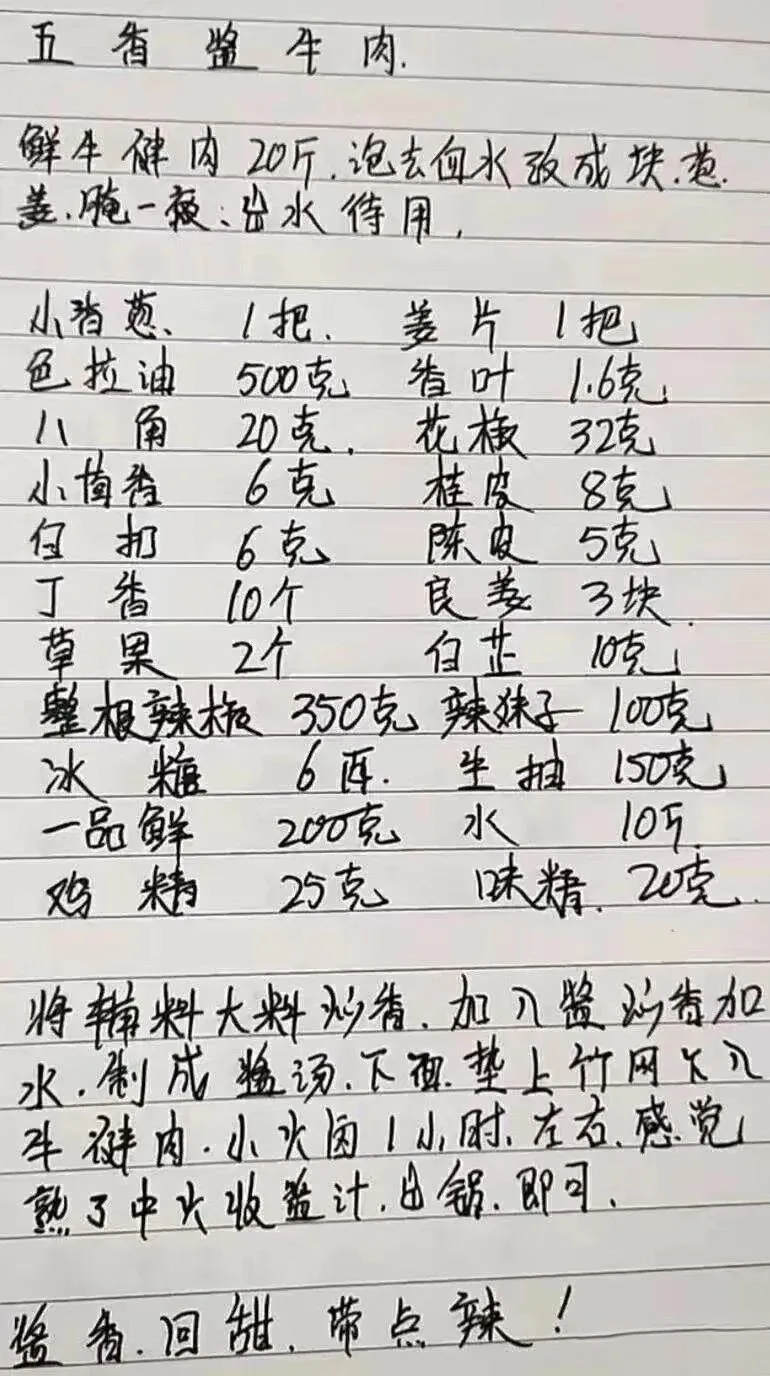 五香酱牛肉.
鲜牛健肉20斤.泡去血水改成块.葱.
姜.腌一夜:出水待用,
小香葱、 1把. 姜片 1把
色拉油 500克 香叶 1.6克
八角 20克. 花椒 32克
小茴香 6克 桂皮 8克
白扣 6克 陈皮 5克
丁香 10个 良姜 3块.
草果 2个 白芷 10克
整根辣椒 350克 辣妹子 100克
冰糖 6两. 生抽 150克
一品鲜 200克 水 10斤.
鸡精 25克 味精. 20克.
将辅料大料炒香.加入酱炒香加
水.制成酱汤.下面.垫上竹网下入
牛健肉.小火卤1小时.左右.感觉
熟了中火收酱汁.出锅.即可.
酱香.回甜.带点辣!